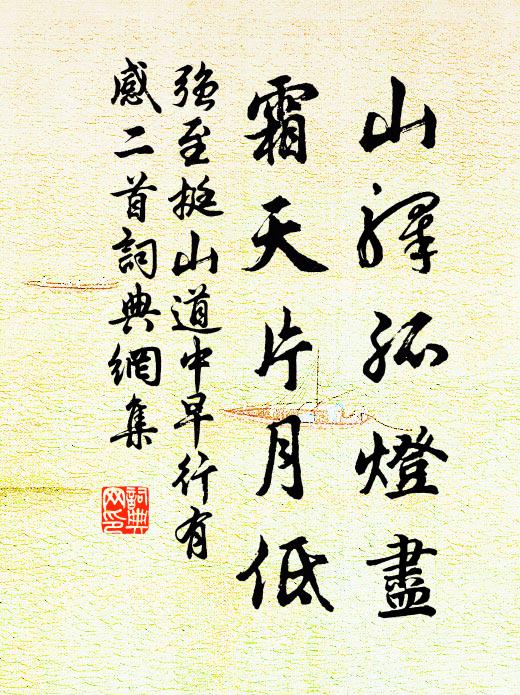 山驛孤燈盡
霜天片月低
強至挺山道中早行有
感二首詞典網集
詞典
网印